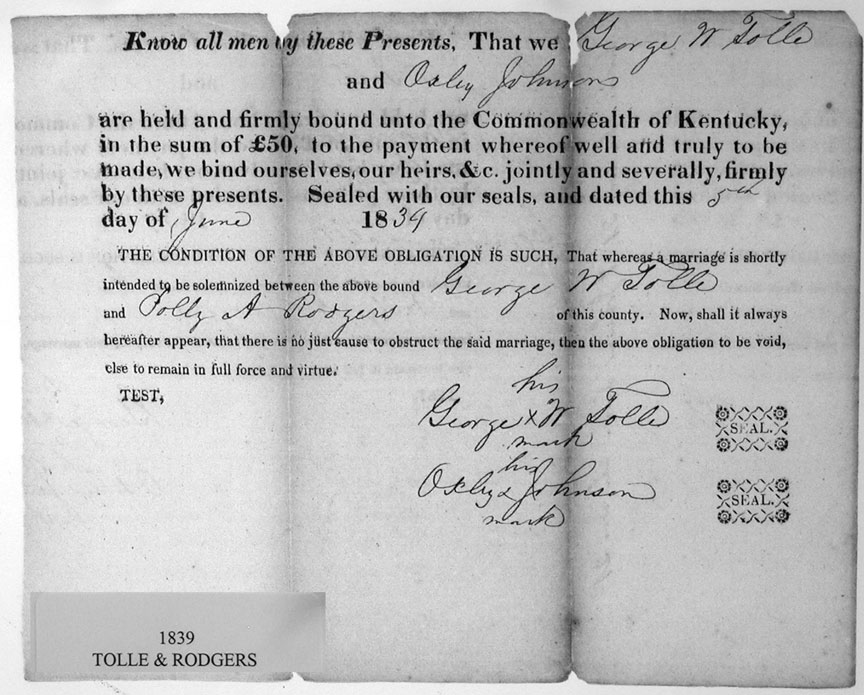 Know all men by these Presents, That we George W Tolle
and Oxley Johnson
are held and firmly bound unto the Commonwealth of Kentucky,
in the sum of £50, to the payment whereof well and truly to be
made, we bind ourselves, our heirs, &c. jointly and severally, firmly
by these presents. Sealed with our seals, and dated this 5th
day of June 1839
THE CONDITION OF THE ABOVE OBLIGATION IS SUCH, That whereas a marriage is shortly
intended to be solemnized between the above bound George W Tolle
and Polly A Rodgers of this county. Now, shall it always
hereafter appear, that there is no just cause to obstruct the said marriage, then the above obligation to be void,
else to remain in full force and virtue.
TEST,
his
George x W Tolle SEAL.
mark
his
Oxley x Johnson SEAL.
mark
1839
TOLLE & RODGERS